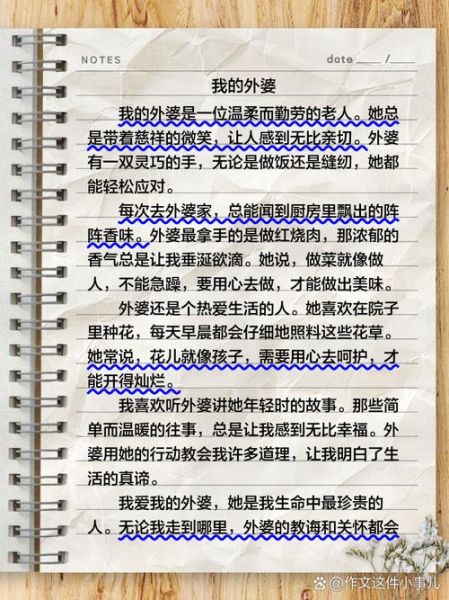 NOTES
date /
我的外婆
我的外婆是一位温柔而勤劳的老人。她总
是带着慈祥的微笑，让人感到无比亲切。外婆
有一双灵巧的手，无论是做饭还是缝纫，她都
能轻松应对。
每次去外婆家，总能闻到厨房里飘出的阵
阵香味。外婆最拿手的是做红烧肉，那浓郁的
香气总是让我垂涎欲滴。她说，做菜就像做
人，不能急躁，要用心去做，才能做出美味。
外婆还是个热爱生活的人。她喜欢在院子
里种花，每天早晨都会仔细地照料这些花草。
她常说，花儿就像孩子，需要用心去呵护，才
能开得灿烂。
我喜欢听外婆讲她年轻时的故事。那些简
单而温暖的往事，总是让我感到无比幸福。外
婆用她的行动教会我许多道理，让我明白了生
活的真谛。
我爱我的外婆，她是我生命中最珍贵的
人。无论我走到哪里，外婆的教诲和关怀都会
@作文这件小事儿